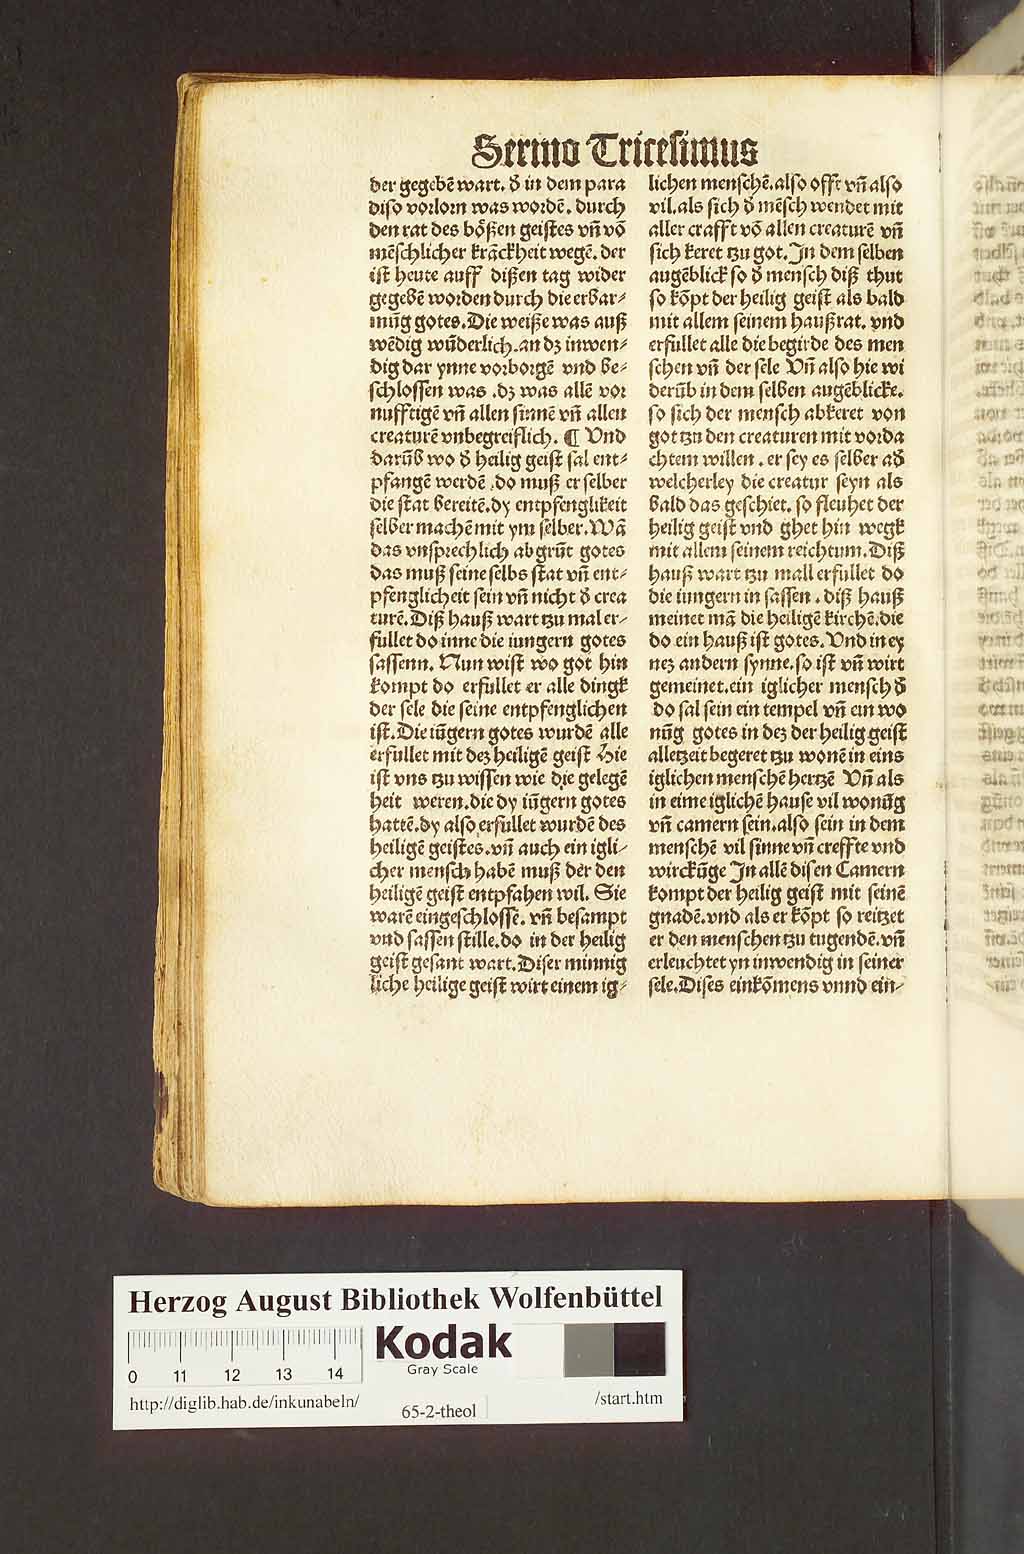 Sermo Tricesimus
der gegebē wart. d̕ in dem para
diso vorlorn was wordē. durch
den rat des bößen geistes vn̄ vō
mēschlicher krāckheit wegē. der
ist heute auff dißen tag wider
gegebē worden durch die erbar⸗
mūg gotes. Die weiße was auß
wēdig wūderlich. an dz inwen⸗
dig dar ynne vorborgē vnd be⸗
schlossen was . dz was allē vor
nufftigē vn̄ allen sinnē vn̄ allen
creaturē vnbegreiflich. ¶ Vnd
darūb wo d̕ heilig geist sal ent⸗
pfangē werdē . do muß er selber
die stat bereitē. dy entpfenglikeit
selber machē mit ym selber. Wā
das vnsprechlich abgrūt gotes
das muß seine selbs stat vn̄ ent⸗
pfenglicheit sein vn̄ nicht d̕ crea
turē. Diß hauß wart tzu mal er⸗
fullet do inne die iungern gotes
sassenn. Nun wist wo got hin
kompt do erfullet er alle dingk
der sele die seine entpfenglichen
ist. Die iūgern gotes wurdē alle
erfullet mit dez heiligē geist Hie
ist vns tzu wissen wie die gelegē
heit weren. die dy iūgern gotes
hattē. dy also erfullet wurdē des
heiligē geistes. vn̄ auch ein igli⸗
cher mensch habē muß der den
heiligē geist entpfahen wil. Sie
warē eingeschlossē. vn̄ besampt
vnd sassen stille. do in der heilig
geist gesant wart. Diser minnig
liche heilige geist wirt einem ig⸗
lichen menschē. also offt vn̄ also
vil. als sich d̕ mēsch wendet mit
aller crafft vō allen creaturē vn̄
sich keret tzu got. In dem selben
augēblick so d̕ mensch diß thut
so kōpt der heilig geist als bald
mit allem seinem haußrat. vnd
erfullet alle die begirde des men
schen vn̄ der sele Vn̄ also hie wi
derūb in dem selben augēblicke.
so sich der mensch abkeret von
got tzu den creaturen mit vorda
chtem willen . er sey es selber ad̕
welcherley die creatur seyn als
bald das geschiet. so fleuhet der
heilig geist vnd ghet hin wegk
mit allem seinem reichtum. Diß
hauß wart tzu mall erfullet do
die iungern in sassen . diß hauß
meinet mā die heiligē kirchē. die
do ein hauß ist gotes. Vnd in ey
nez andern synne. so ist vn̄ wirt
gemeinet. ein iglicher mensch d̕
do sal sein ein tempel vn̄ ein wo
nūg gotes in dez der heilig geist
alletzeit begeret tzu wonē in eins
iglichen menschē hertzē Vn̄ als
in eime iglichē hause vil wonūg
vn̄ camern sein. also sein in dem
menschē vil sinne vn̄ creffte vnd
wirckūge In allē disen Camern
kompt der heilig geist mit seinē
gnadē. vnd als er kōpt so reitzet
er den menschen tzu tugendē. vn̄
erleuchtet yn inwendig in seiner
sele. Dises einkōmens vnnd ein⸗
Herzog August Bibliothek Wolfenbüttel
0 11 12 13 14
Kodak
Gray Scale
http://diglib.hab.de/inkunabeln/
65-2-theol
/start.htm